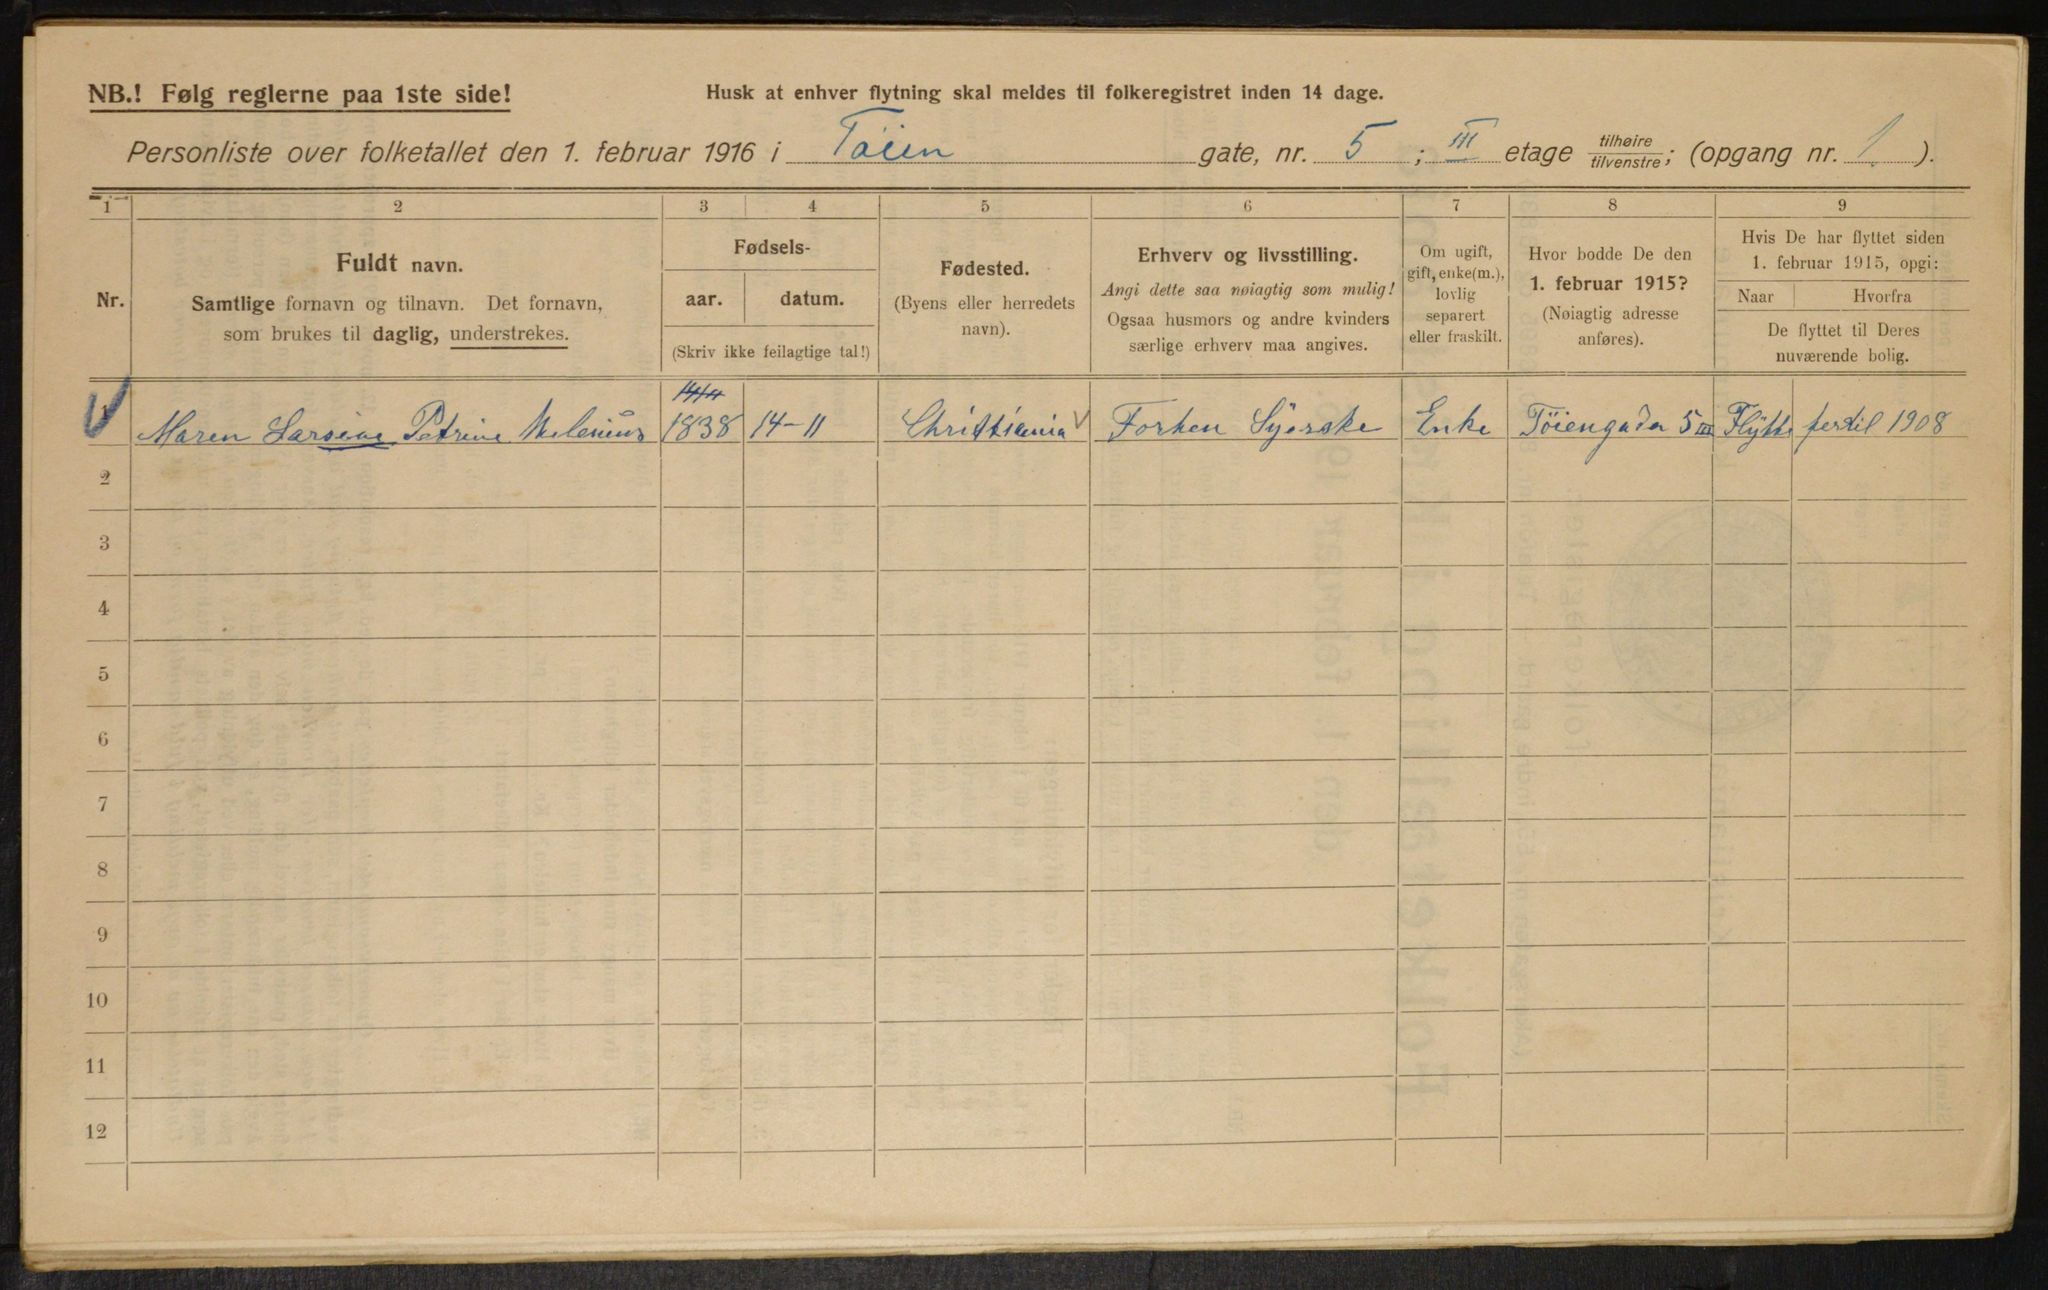 NB.! Følg reglerne paa 1ste side!
Husk at enhver flytning skal meldes til folkeregistret inden 14 dage.
Personliste over folketallet den 1. februar 1916 i Tøien gate, nr. 5 ; III etage tilhøire/tilvenstre; (opgang nr. 1 ).
1 2 3 4 5 6 7 8 9
Nr.
Fuldt navn.
Samtlige fornavn og tilnavn. Det fornavn,
som brukes til daglig, understrekes.
Fødsels-
aar. datum.
(Skriv ikke feilagtige tal!)
Fødested.
(Byens eller herredets
navn).
Erhverv og livsstilling.
Angi dette saa nøiagtig som mulig!
Ogsaa husmors og andre kvinders
særlige erhverv maa angives.
Om ugift,
gift, enke(m.),
lovlig
separert
eller fraskilt.
Hvor bodde De den
1. februar 1915?
(Nøiagtig adresse
anføres).
Hvis De har flyttet siden
1. februar 1915, opgi:
Naar Hvorfra
De flyttet til Deres
nuværende bolig.
1 Maren Larsine Petrine 1838 14-11 Christiania Forhen Syerske Enke Töiengada 5 III Flytte 1908
2
3
4
5
6
7
8
9
10
11
12